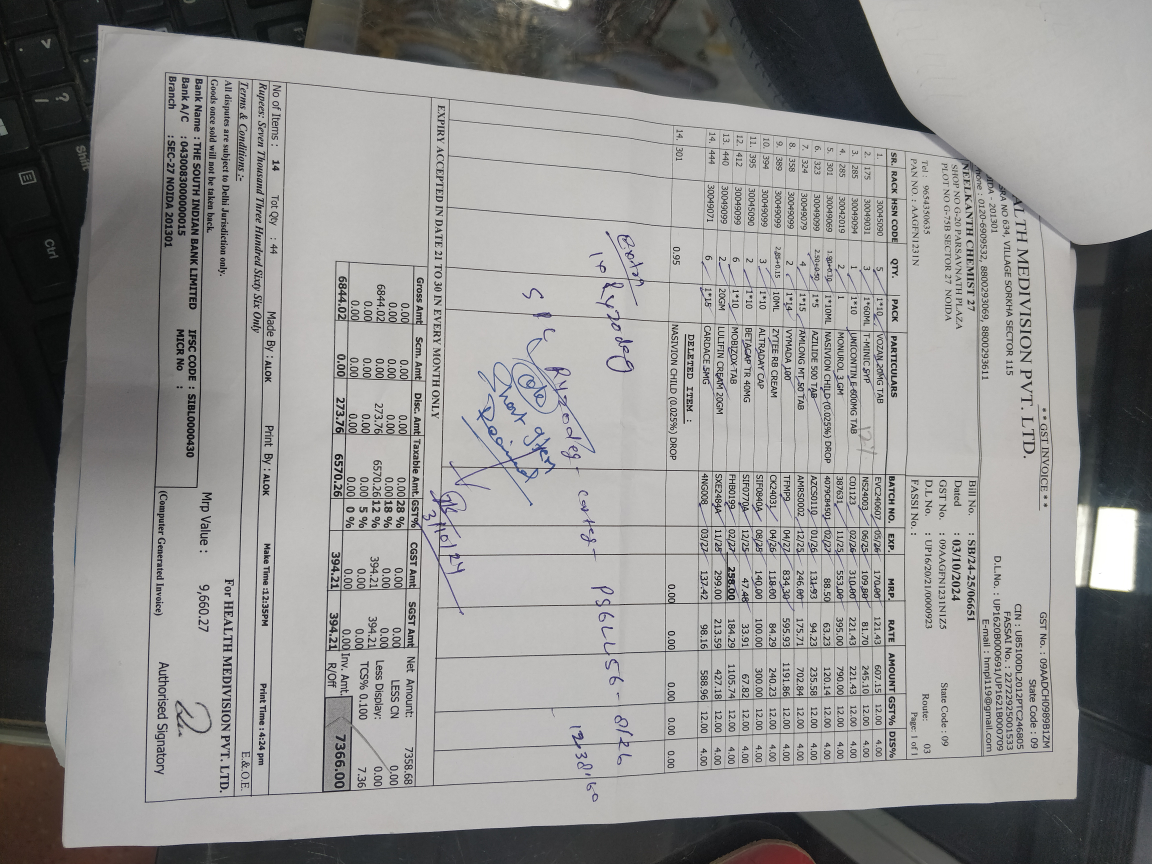 ** GST INVOICE **
GST No. : 09AADCH0989B1ZM
State Code : 09
ALTH MEDIVISION PVT. LTD.
SRA NO 634, VILLAGE SORKHA SECTOR 115
IDA - 201301
hone : 0120-6909532, 8800293069, 8800293611
CIN : U85100DL2012PTC246805
FASSAI No. : 22722925001533
D.L.No. : UP1620B000691/UP1621B000709
E-mail : hmpl119@gmail.com
NEELKANTH CHEMIST 27
SHOP NO G-20 PARSAVNATH PLAZA
PLOT NO G-75B SECTOR 27 NOIDA
Tel : 9654350635
PAN NO. : AAGFN1231N
Bill No. : SB/24-25/06651
Dated : 03/10/2024
GST No. : 09AAGFN1231N1Z5 State Code : 09
D.L No. : UP16/20/21/0000923 Route: 03
FASSI No. : Page: 1 of 1
SR. RACK HSN CODE QTY. PACK PARTICULARS BATCH NO. EXP. MRP. RATE AMOUNT GST% DIS%
1. 30045090 5 1*10 VOZAN 20MG TAB EVC240607 05/26 170.00 121.43 607.15 12.00 4.00
2. 175 30049031 3 1*60ML T-MINIC SYP NS24003 06/25 109.80 81.70 245.10 12.00 4.00
3. 285 30049094 1 1*10 UNICONTIN E 600MG TAB C01123 02/26 310.00 221.43 221.43 12.00 4.00
4. 285 30042019 2 1 MONUROL 3 GM 387631 11/25 553.00 395.00 790.00 12.00 4.00
5. 301 30049069 1.90+0.10 1*10ML NASIVION CHILD (0.025%) DROP 4079C84501 02/27 88.50 63.23 120.14 12.00 4.00
6. 323 30049099 2.50+0.50 1*5 AZILIDE 500 TAB AZCS0110 01/26 131.93 94.23 235.58 12.00 4.00
7. 324 30049079 4 1*15 AMLONG MT 50 TAB AMRS0002 12/25 246.00 175.71 702.84 12.00 4.00
8. 358 30049099 2 1*14 VYMADA 100 TFNP9 04/27 834.30 595.93 1191.86 12.00 4.00
9. 389 30049099 2.85+0.15 10ML ZYTEE RB CREAM CK24031 04/26 118.00 84.29 240.23 12.00 4.00
10. 394 30049099 3 1*10 ALTRADAY CAP SIF0840A 08/25 140.00 100.00 300.00 12.00 4.00
11. 395 30045090 2 1*10 BETACAP TR 40MG SIF0770A 12/25 47.48 33.91 67.82 12.00 4.00
12. 412 30049099 6 1*10 MOBIZOX TAB FHB0199 02/27 258.00 184.29 1105.74 12.00 4.00
13. 440 30049099 2 20GM LULIFIN CREAM 20GM SXE2484A 11/25 299.00 213.59 427.18 12.00 4.00
14. 444 30049071 6 1*15 CARDACE 5MG 4NG008 03/27 137.42 98.16 588.96 12.00 4.00
DELETED ITEM :
14. 301 0.95 NASIVION CHILD (0.025%) DROP 0.00 0.00 0.00 0.00 0.00
Ryzodeg
Ryzodeg - - PS6LL56 - 8/26
Short item
Received
3/10/24
EXPIRY ACCEPTED IN DATE 21 TO 30 IN EVERY MONTH ONLY
Gross Amt Scm. Amt Disc. Amt Taxable Amt. GST% CGST Amt SGST Amt
0.00 0.00 0.00 0.00 28 % 0.00 0.00
0.00 0.00 0.00 0.00 18 % 0.00 0.00
6844.02 0.00 273.76 6570.26 12 % 394.21 394.21
0.00 0.00 0.00 0.00 5 % 0.00 0.00
0.00 0.00 0.00 0.00 0 %
6844.02 0.00 273.76 6570.26 394.21 394.21
Net Amount: 7358.68
LESS CN 0.00
Less Display: 0.00
TCS% 0.100 7.36
Inv. Amt. 7366.00
R/Off
No of Items : 14 Tot Qty : 44 Made By : ALOK Print By : ALOK Make Time :12:35PM Print Time : 4:24 pm
Rupees: Seven Thousand Three Hundred Sixty Six Only E.& O.E.
Terms & Conditions :-
All disputes are subject to Delhi Jurisdiction only.
Goods once sold will not be taken back.
Bank Name : THE SOUTH INDIAN BANK LIMITED IFSC CODE : SIBL0000430
Bank A/C : 0430083000000015 MICR No :
Branch : SEC-27 NOIDA 201301
Mrp Value : 9,660.27
For HEALTH MEDIVISION PVT. LTD.
(Computer Generated Invoice)
Authorised Signatory
Shift
Ctrl